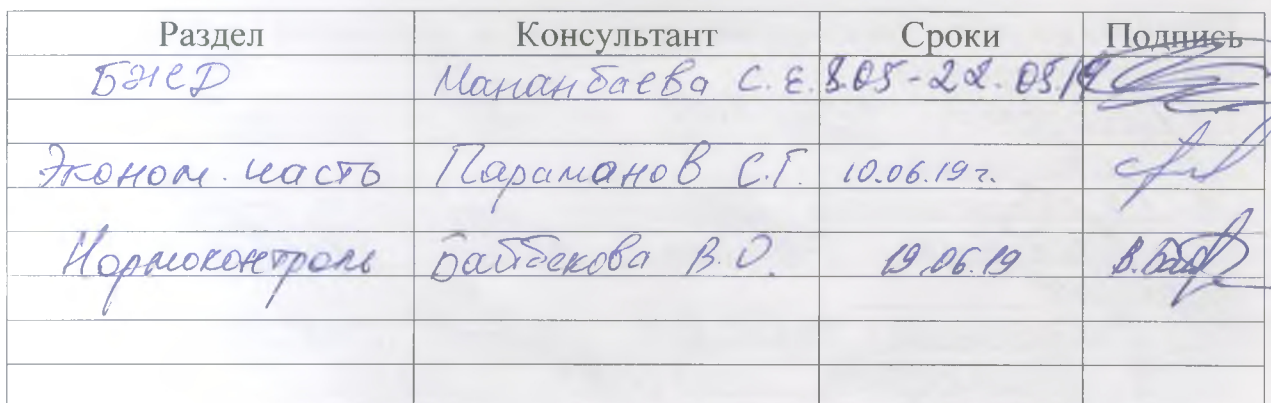 Раздел Консультант Сроки Подпись
БЖД Мананбаева С.Е. 8.05-22.05.19
Эконом. часть Параманов С.Г. 10.06.19 г.
Нормоконтроль Байбекова В.О. 19.06.19